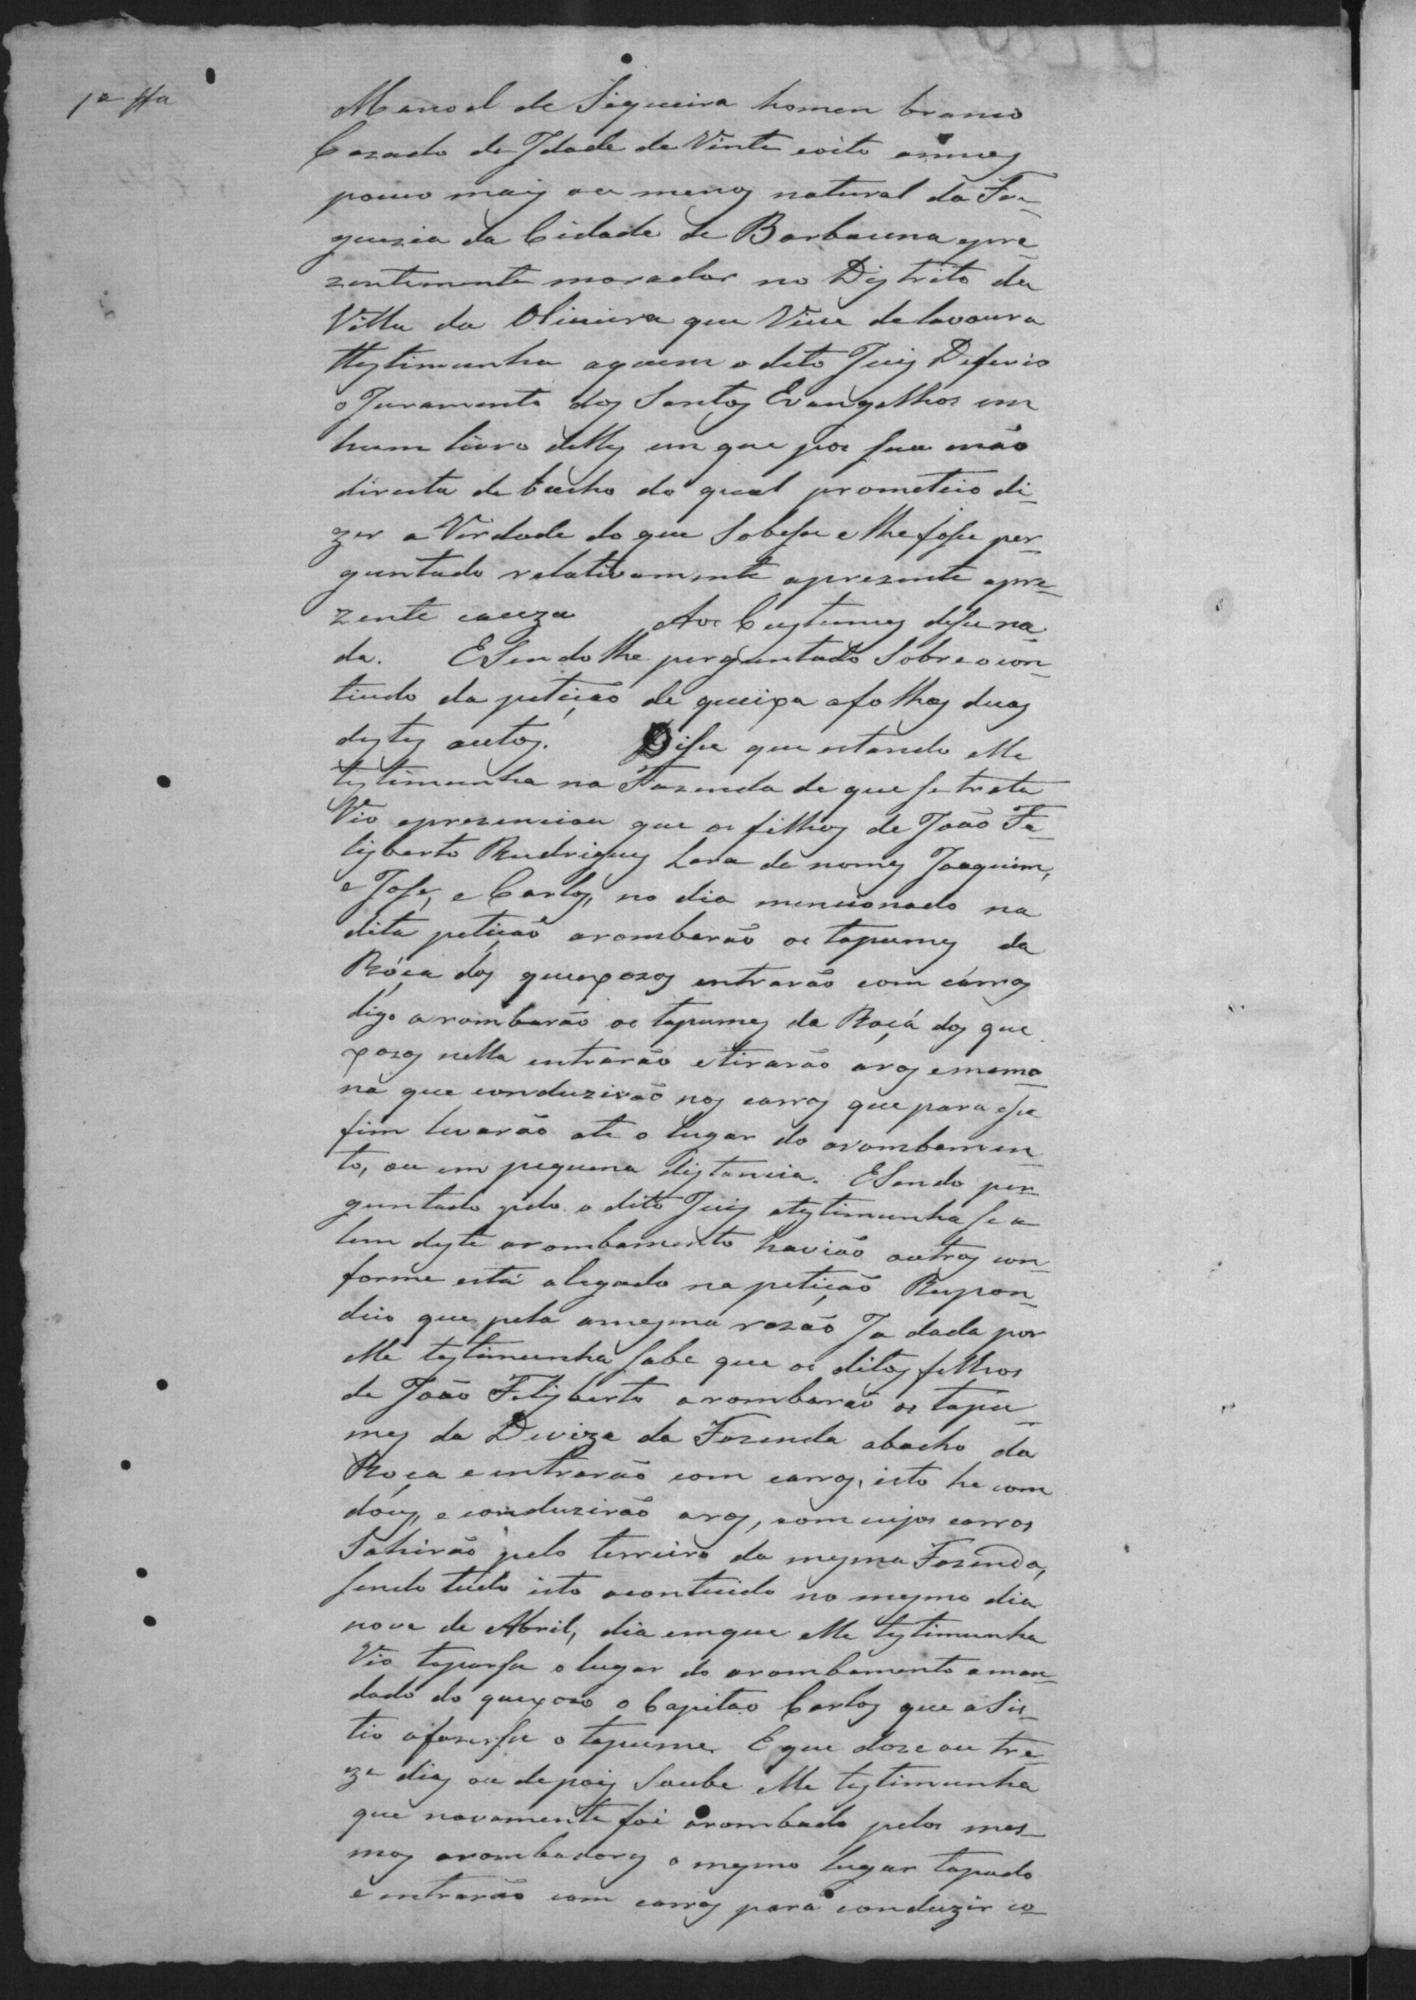 1ª tta
Manoel de Siqueira homen branco
Cazado de Idade de Vinte eoito annos
pouco mais ou menos natural da Fre-
guezia da Cidade de Barbacena epre
zentemente morador no Distrito da
Villa da Oliveira que Vive delavoura
ttestimunha aquem o dito Juis Deferio
o Juramento dos Santos Evangelhos em
hum livro delles em que pos sua mão
direita de bacho do qual prometeio di-
zer a Verdade do que Sobese e lhe fose per-
guntado relativamente apresente apre-
zente cauza Aos Custumes dise na-
da. ESendo lhe perguntado Sobre o con-
tiudo da petição de queixa afolhas duas
destes autos. Dise que estando elle
testimunha na Fazenda de que se trata
Vio epresenciou que os filhos de João Fe-
lisberto Rudrigues Lara de nomes Joaquim,
e Jose, e Carlos, no dia mencionado na
dita petição arombarão os tapumes da
Róça dos queixozos entrarão com cárros
digo arombarão os tapumes da Roçá dos que
xozos nella entrarão etirarão aros emamo-
na que conduzirão nos carros que para ese
fim levarão ate o lugar do arombamen-
to, ou em pequena distancia. ESendo per-
guntado pelo o dito Juis atestimunha se a
lem deste arombamento havião outros con-
forme está alegado na petição Respon-
deio que pela amesma razão Ja dada por
elle testimunha sabe que os ditos filhos
de João Felisberto arombarão os tapu-
mes da Deviza da Fazenda abacho da
Roça e entrarão com carros, isto he com
dous, e conduzirão aros, com cujos carros
Sahirão pelo terreiro da mesma Fazenda,
sendo tudo isto acontecido no mesmo dia
nove de Abril, dia emque elle testimunha
Vio taparse o lugar do arombamento aman-
dado do queixozo o Capitão Carlos que asis-
tio afazerse o tapume. E que doze ou tre-
ze dias ou depois Soube elle testimunha
que novamente foi arombado pelos mes-
mos arombadores o mesmo lugar tapado
e entrarão com carros para conduzir co-